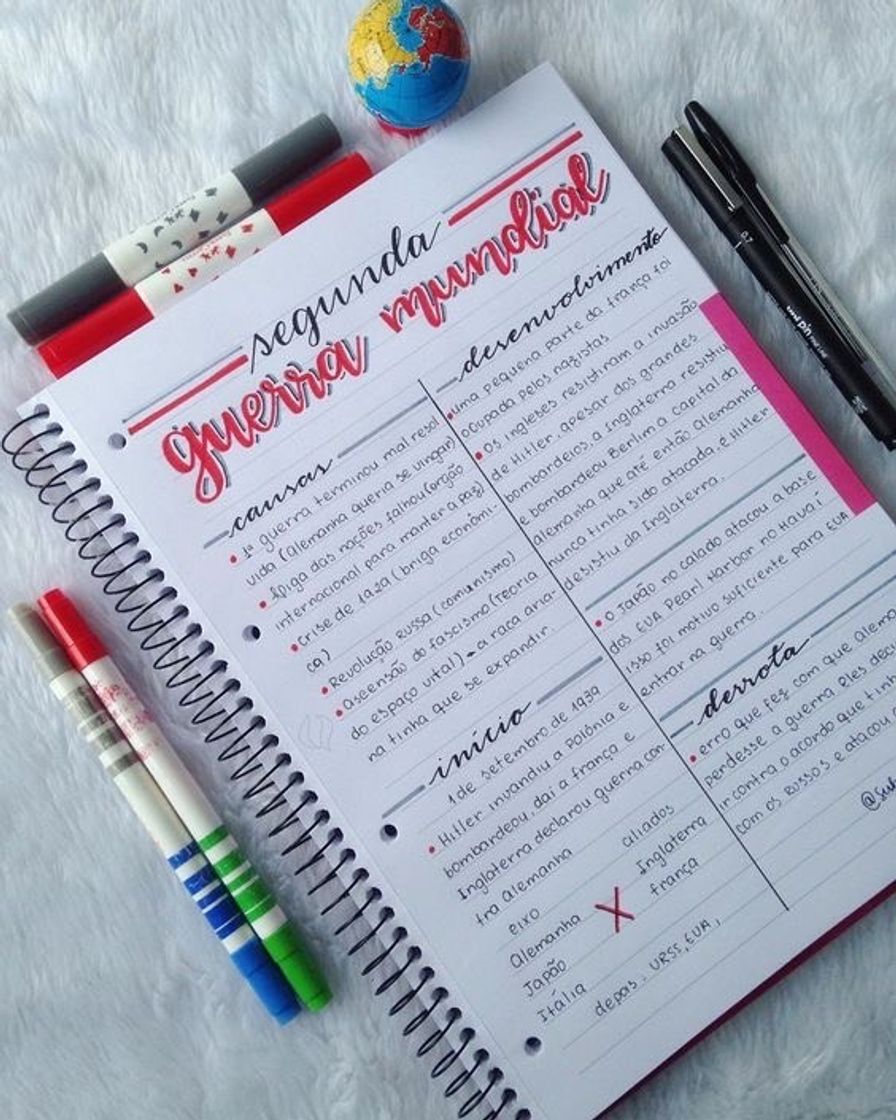 segunda
guerra mundial
causas
1ª guerra terminou mal resol
vida (Alemanha queria se vingar)
A liga das nações falhou (orgão
internacional para manter a paz)
crise de 1929 (briga econômi-
ca)
Revolução Russa (comunismo)
ascensão do fascismo (Teoria
do espaço vital) → a raça aria-
na tinha que se expandir.
início
1 de setembro de 1939
Hitler invandiu a Polônia e
bombardeou, daí a frança e
Inglaterra declarou guerra con-
tra Alemanha
eixo
aliados
Alemanha
X
Inglaterra
Japão
frança
Itália
depois: URSS, EUA,
desenvolvimento
uma pequena parte da frança foi
ocupada pelos nazistas
os ingleses resistiram a invasão
de Hitler, apesar dos grandes
bombardeios, a Inglaterra resistiu
e bombardeou Berlim a capital da
Alemanha que até então Alemanha
nunca tinha sido atacada, e Hitler
desistiu da Inglaterra.
o Japão no calado atacou a base
dos EUA Pearl Harbor no Havaí
isso foi motivo suficiente para EUA
entrar na guerra.
derrota
erro que fez com que Alem
perdesse a guerra Eles deci
ir contra o acordo que tin
com os Russos e atacou
uni pin
0.7